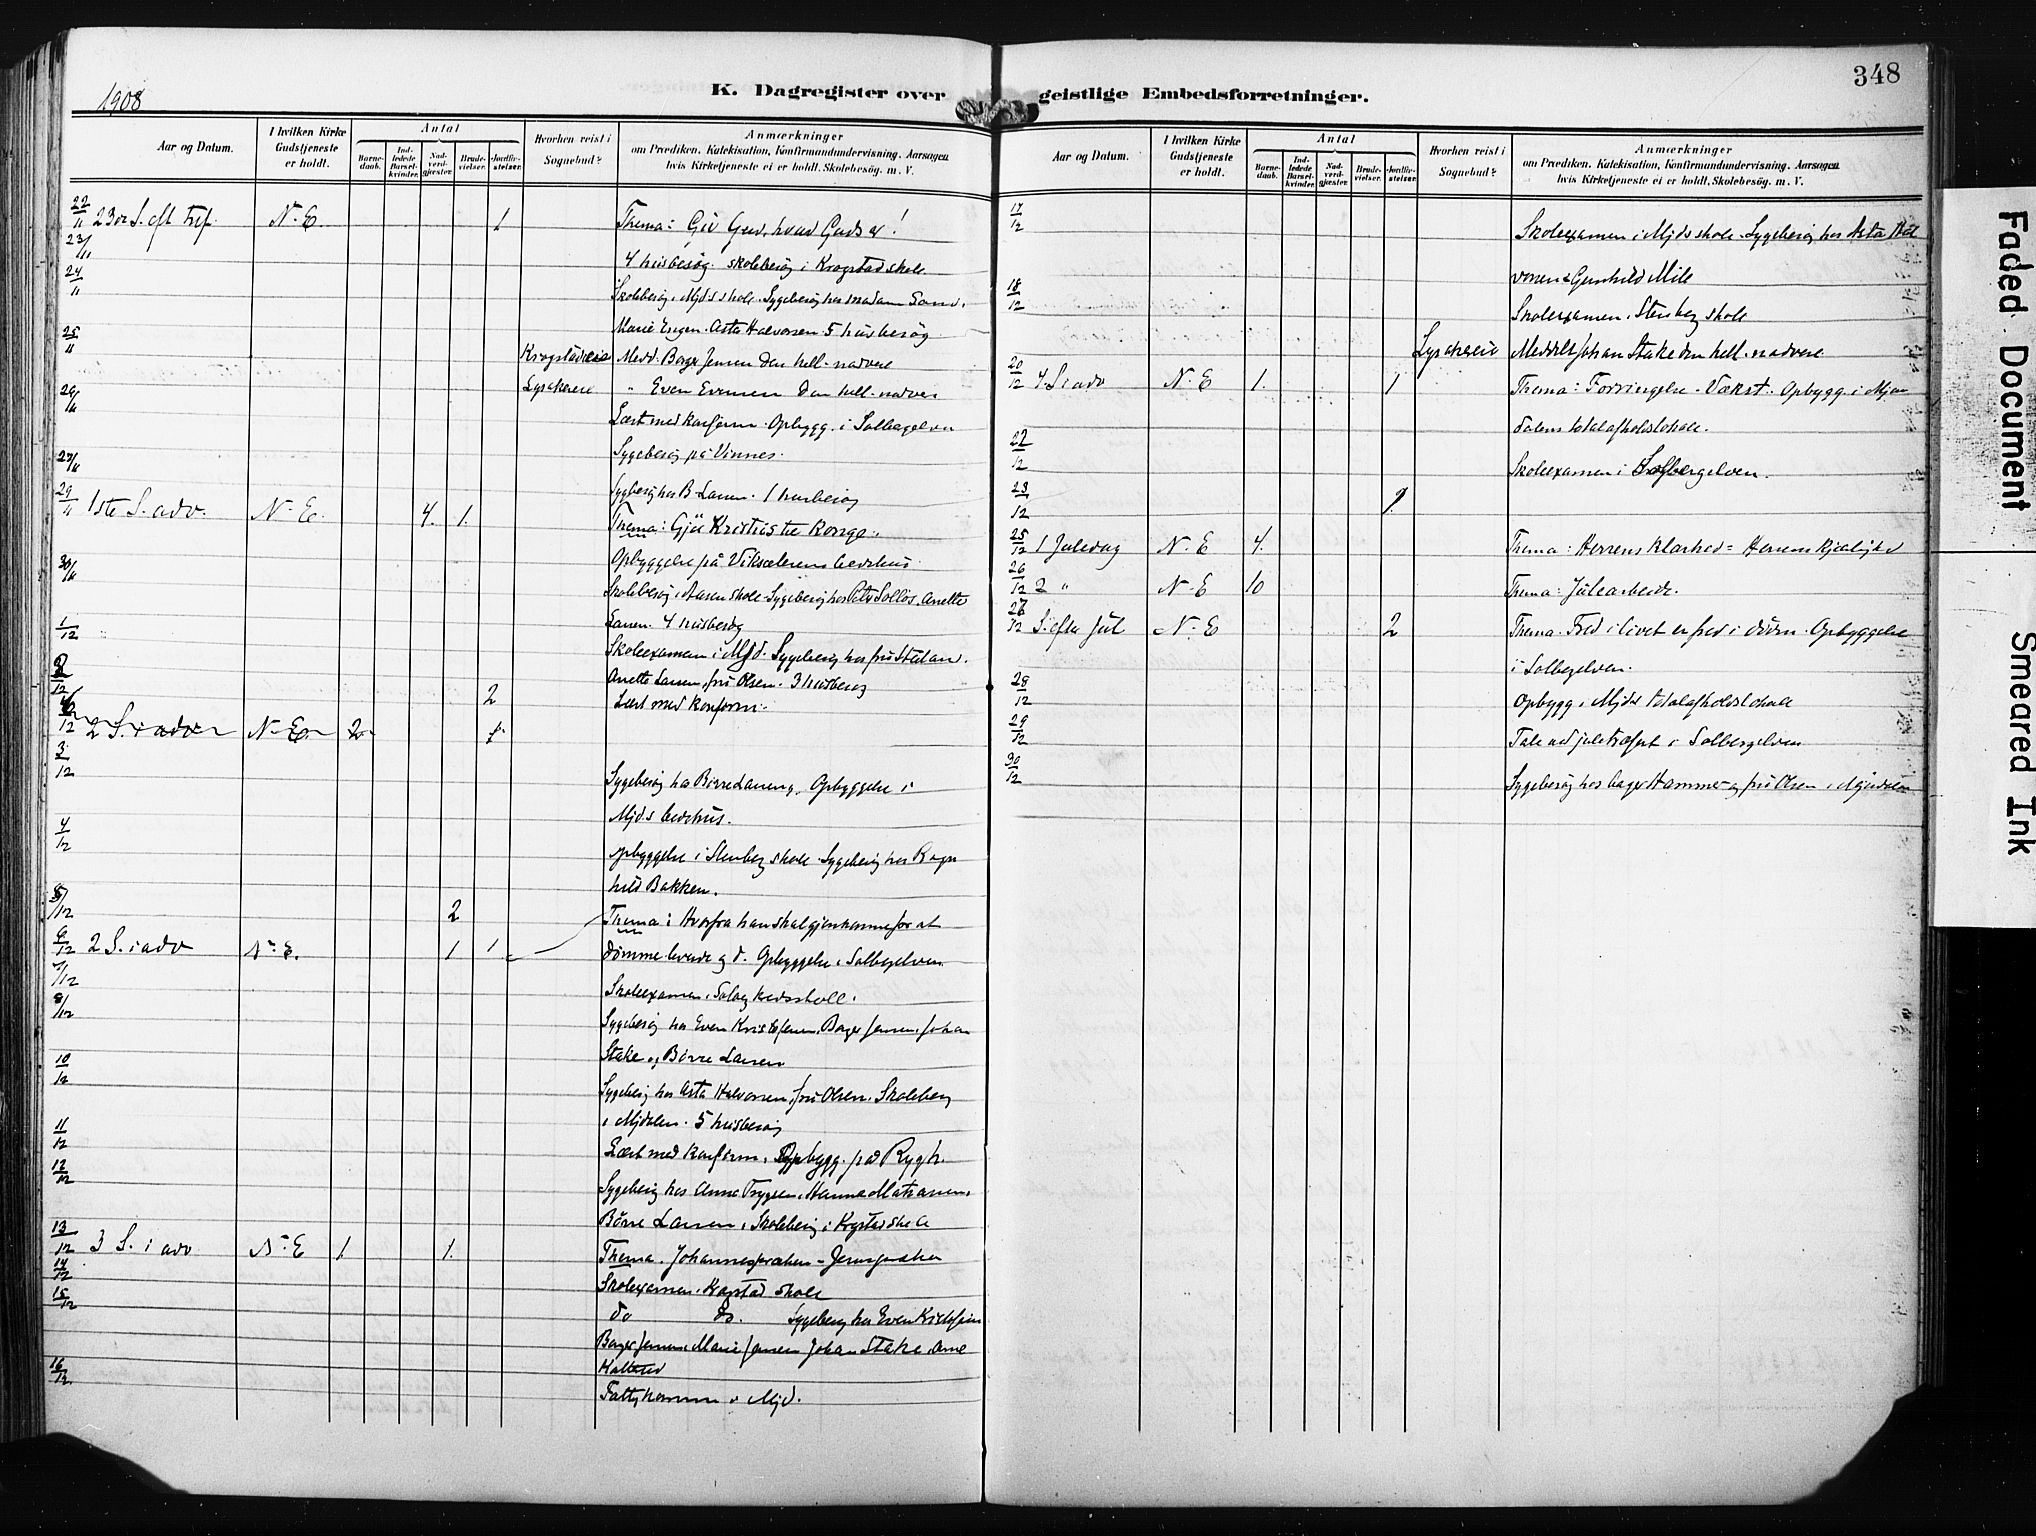 1908
K. Dagregister over geistlige Embedsforretninger.
348
Aar og Datum.
I hvilken Kirke Gudstjeneste er holdt.
Antal
Barnedaab.
Indledede Barselkvinder.
Nadverdgjester.
Brudevielser.
Jordfæstelser.
Hvorhen reist i Sognebud?
Anmærkninger
om Prædiken, Katekisation, Konfirmandundervisning. Aarsagen
hvis Kirketjeneste ei er holdt. Skolebesøg. m. V.
22/11 23de S. eft tref. N. E. 1 Thema: Giv Gud, hvad Guds er!
23/11 4 husbesøg. skolebesøg i Krogstad skole
24/11 Skolebesøg i Mjds skole. Sygebesøg hos madam Sand,
Marie Engen. Asta Halvorsen 5 husbesøg
25/11 Krogstadeie Medd. Borger Jensen den hell. nadvere
Lysakereie " Even Evensen den hell. nadver
26/11 Læst med konfirm. Opbygg. i Solbergelven
Sygebesøg på Vinnes.
27/11 Sygebesøg hos B. Larsen. 1 husbesøg
29/11 1ste S. adv. N. E. 4. 1. Thema: Gjør Kristus til konge.
Opbyggelse på Viksælerens bedehus
30/11 Skolebesøg i Aasen skole. Sygebesøg hos Anette
Larsen. 4 husbesøg
1/12 Skoleexamen i Mjd. Sygebesøg hos fru
Anette Larsen, fru Olsen. 3 husbesøg
2/12 2 Læst med konfirm.
6/12 2 S. i adv N. E. 2 1
3/12 Sygebesøg hos Børre Larsen, Opbyggelse i
Mjds bedehus.
4/12 Opbyggelse i Stenberg skole. Sygebesøg hos Ragn
hild Bakken.
5/12 2 Thema: Hvorfra han skal gjenkomme for at
6/12 2 S. i adv N. E. 1 1 dømme levende og d. Opbyggelse i Solbergelven
7/12 Skoleexamen i
8/12 Sygebesøg hos Even Kristofersen, Borger Jensen, Johan
Stake og Børre Larsen
10/12 Sygebesøg hos Asta Halvorsen, fru Olsen. Skolebesøg
i Mjdalen. 5 husbesøg
11/12 Læst med konfirm. Opbygg. på Rygh.
12/12 Sygebesøg hos Anna Trygsen, Hanna Mathiasen,
Børre Larsen, Skolebesøg i Krogstad skole
13/12 3 S. i adv N. E 1 1. Thema. Johannes - Jesus
14/12 Skoleexamen i Krogstad skole
15/12 do do. Sygebesøg hos Even Kristofersen
Borger Jensen, Marie Jensen Johan Stake, Arne
Kolterud
16/12 Fattigkommission i Mjd.
Aar og Datum.
I hvilken Kirke Gudstjeneste er holdt.
Antal
Barnedaab.
Indledede Barselkvinder.
Nadverdgjester.
Brudevielser.
Jordfæstelser.
Hvorhen reist i Sognebud?
Anmærkninger
om Prædiken, Katekisation, Konfirmandundervisning. Aarsagen
hvis Kirketjeneste ei er holdt, Skolebesøg. m. V.
17/12 Skoleexamen i Mjds skole. Sygebesøg hos Asta Hal
vorsen & Gunhild Mile
18/12 Skoleexamen i Stenberg skole
Lysakereie Meddelt Johan Stake den hell. nadvere
20/12 4 S i adv N. E 1. 1 Thema: Forringelse - Vækst. Opbygg. i Mjøn
dalens totalafholdslokale.
22/12 Skoleexamen i Solbergelven.
23/12 1.
25/12 1 Juledag N. E 4. Thema: Herrens klarhed = Herrens kjærlighed
26/12 2 " N. E 10 Thema: Julearbeide.
27/12 S. efter Jul N. E 2 Thema. Fred i livet er fred i døden. Opbyggelse
i Solbergelven.
28/12 Opbygg i Mjds totalafholdslokale
29/12 Tale ved juletræfest i Solbergelven
30/12 Sygebesøg hos bager Hammer og fru Olsen i Mjøndalen
Faded Document
Smeared Ink